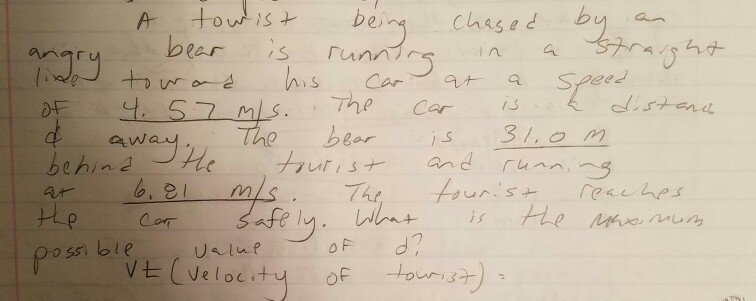 A tourist being chased by an
angry bear is running in a straight
line toward his car at a speed
of 4.57 m/s. The car is a distance
d away. The bear is 31.0 m
behind the tourist and running
at 6.81 m/s. The tourist reaches
the car safely. What is the maximum
possible value of d?
Vt (velocity of tourist) =